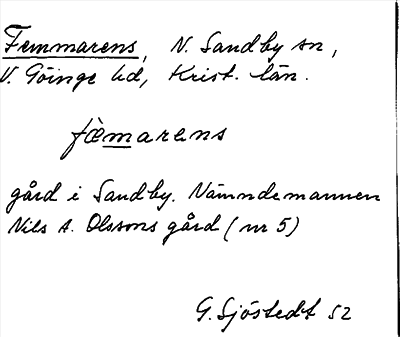 Femmarens, N. Sandby sn,
V. Göinge hd, Krist. län.
fèmarens
gård i Sandby. Nämndemannen
Nils A. Olssons gård (nr 5)
G. Sjöstedt 52